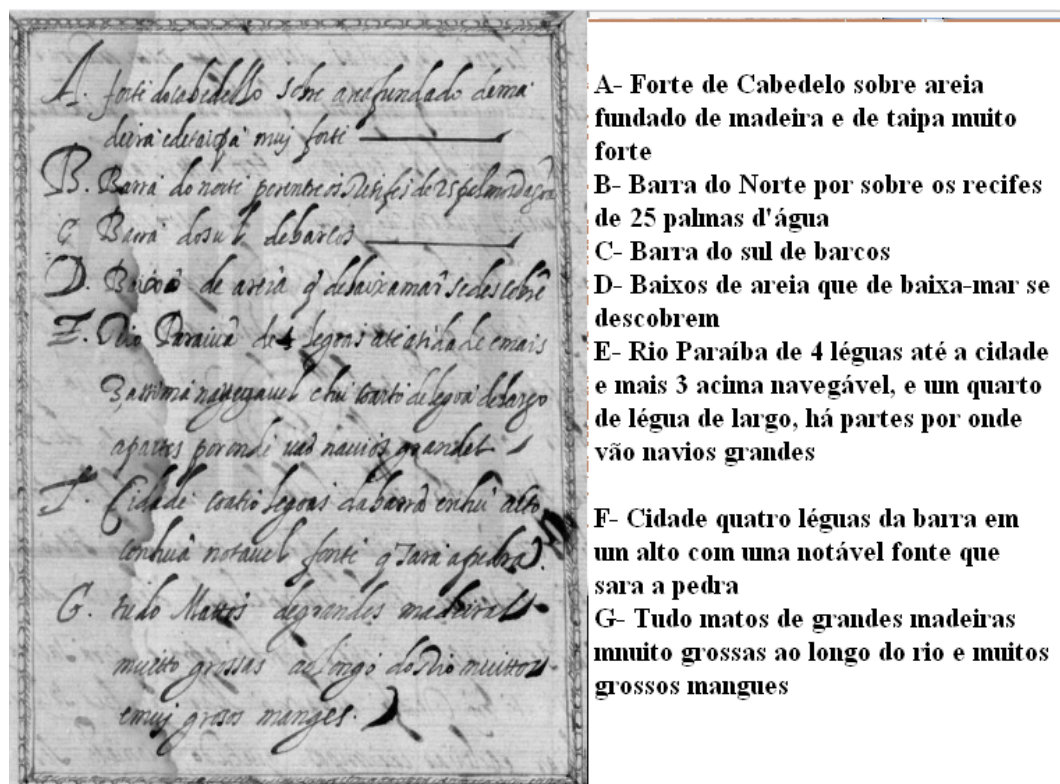 A. forte do cabedello sobre area fundado de ma
deira e de taipa muj forte
B. Barra do norte per entre os Reçifes de 25 palmos dagoa
C Barra do sul de barcos
D. Baixos de areia q debaixamar se descobrẽ
E. Rio Paraiua de 4 legoas ate a cidade e mais
3 assima nauegauel e hũ coarto de legoa de largo
a partes por onde uaõ nauios grandes
F. Cidade coatro legoas da barra en hũ alto
con huã notauel fonte q sara a pedra
G. tudo Mattos de grandes madeiras
muitto grossas ao longo do Rio muittos
e muj grosos mangues.
A- Forte de Cabedelo sobre areia
fundado de madeira e de taipa muito
forte
B- Barra do Norte por sobre os recifes
de 25 palmas d'água
C- Barra do sul de barcos
D- Baixos de areia que de baixa-mar se
descobrem
E- Rio Paraíba de 4 léguas até a cidade
e mais 3 acima navegável, e un quarto
de légua de largo, há partes por onde
vão navios grandes
F- Cidade quatro léguas da barra em
um alto com uma notável fonte que
sara a pedra
G- Tudo matos de grandes madeiras
mnuito grossas ao longo do rio e muitos
grossos mangues